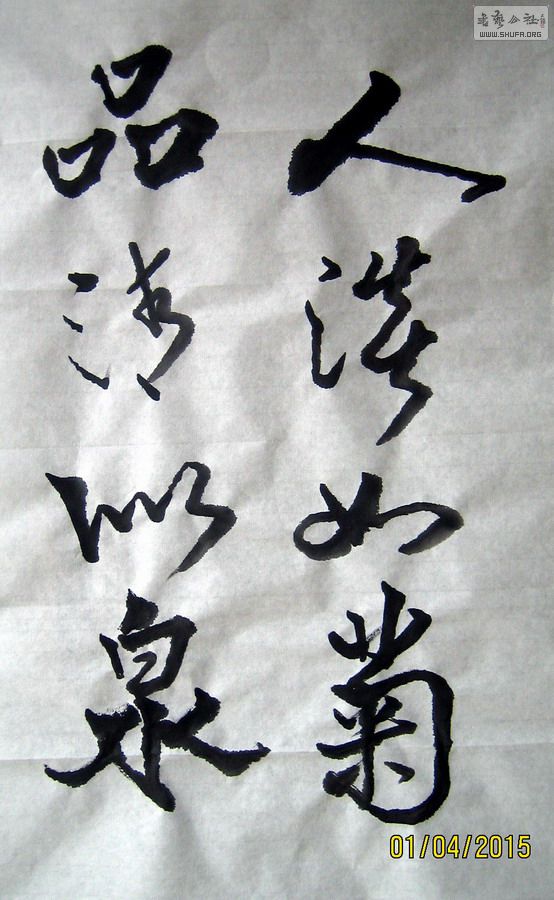 人淡如菊
品清似泉
书艺公社
WWW.SHUFA.ORG
01/04/2015